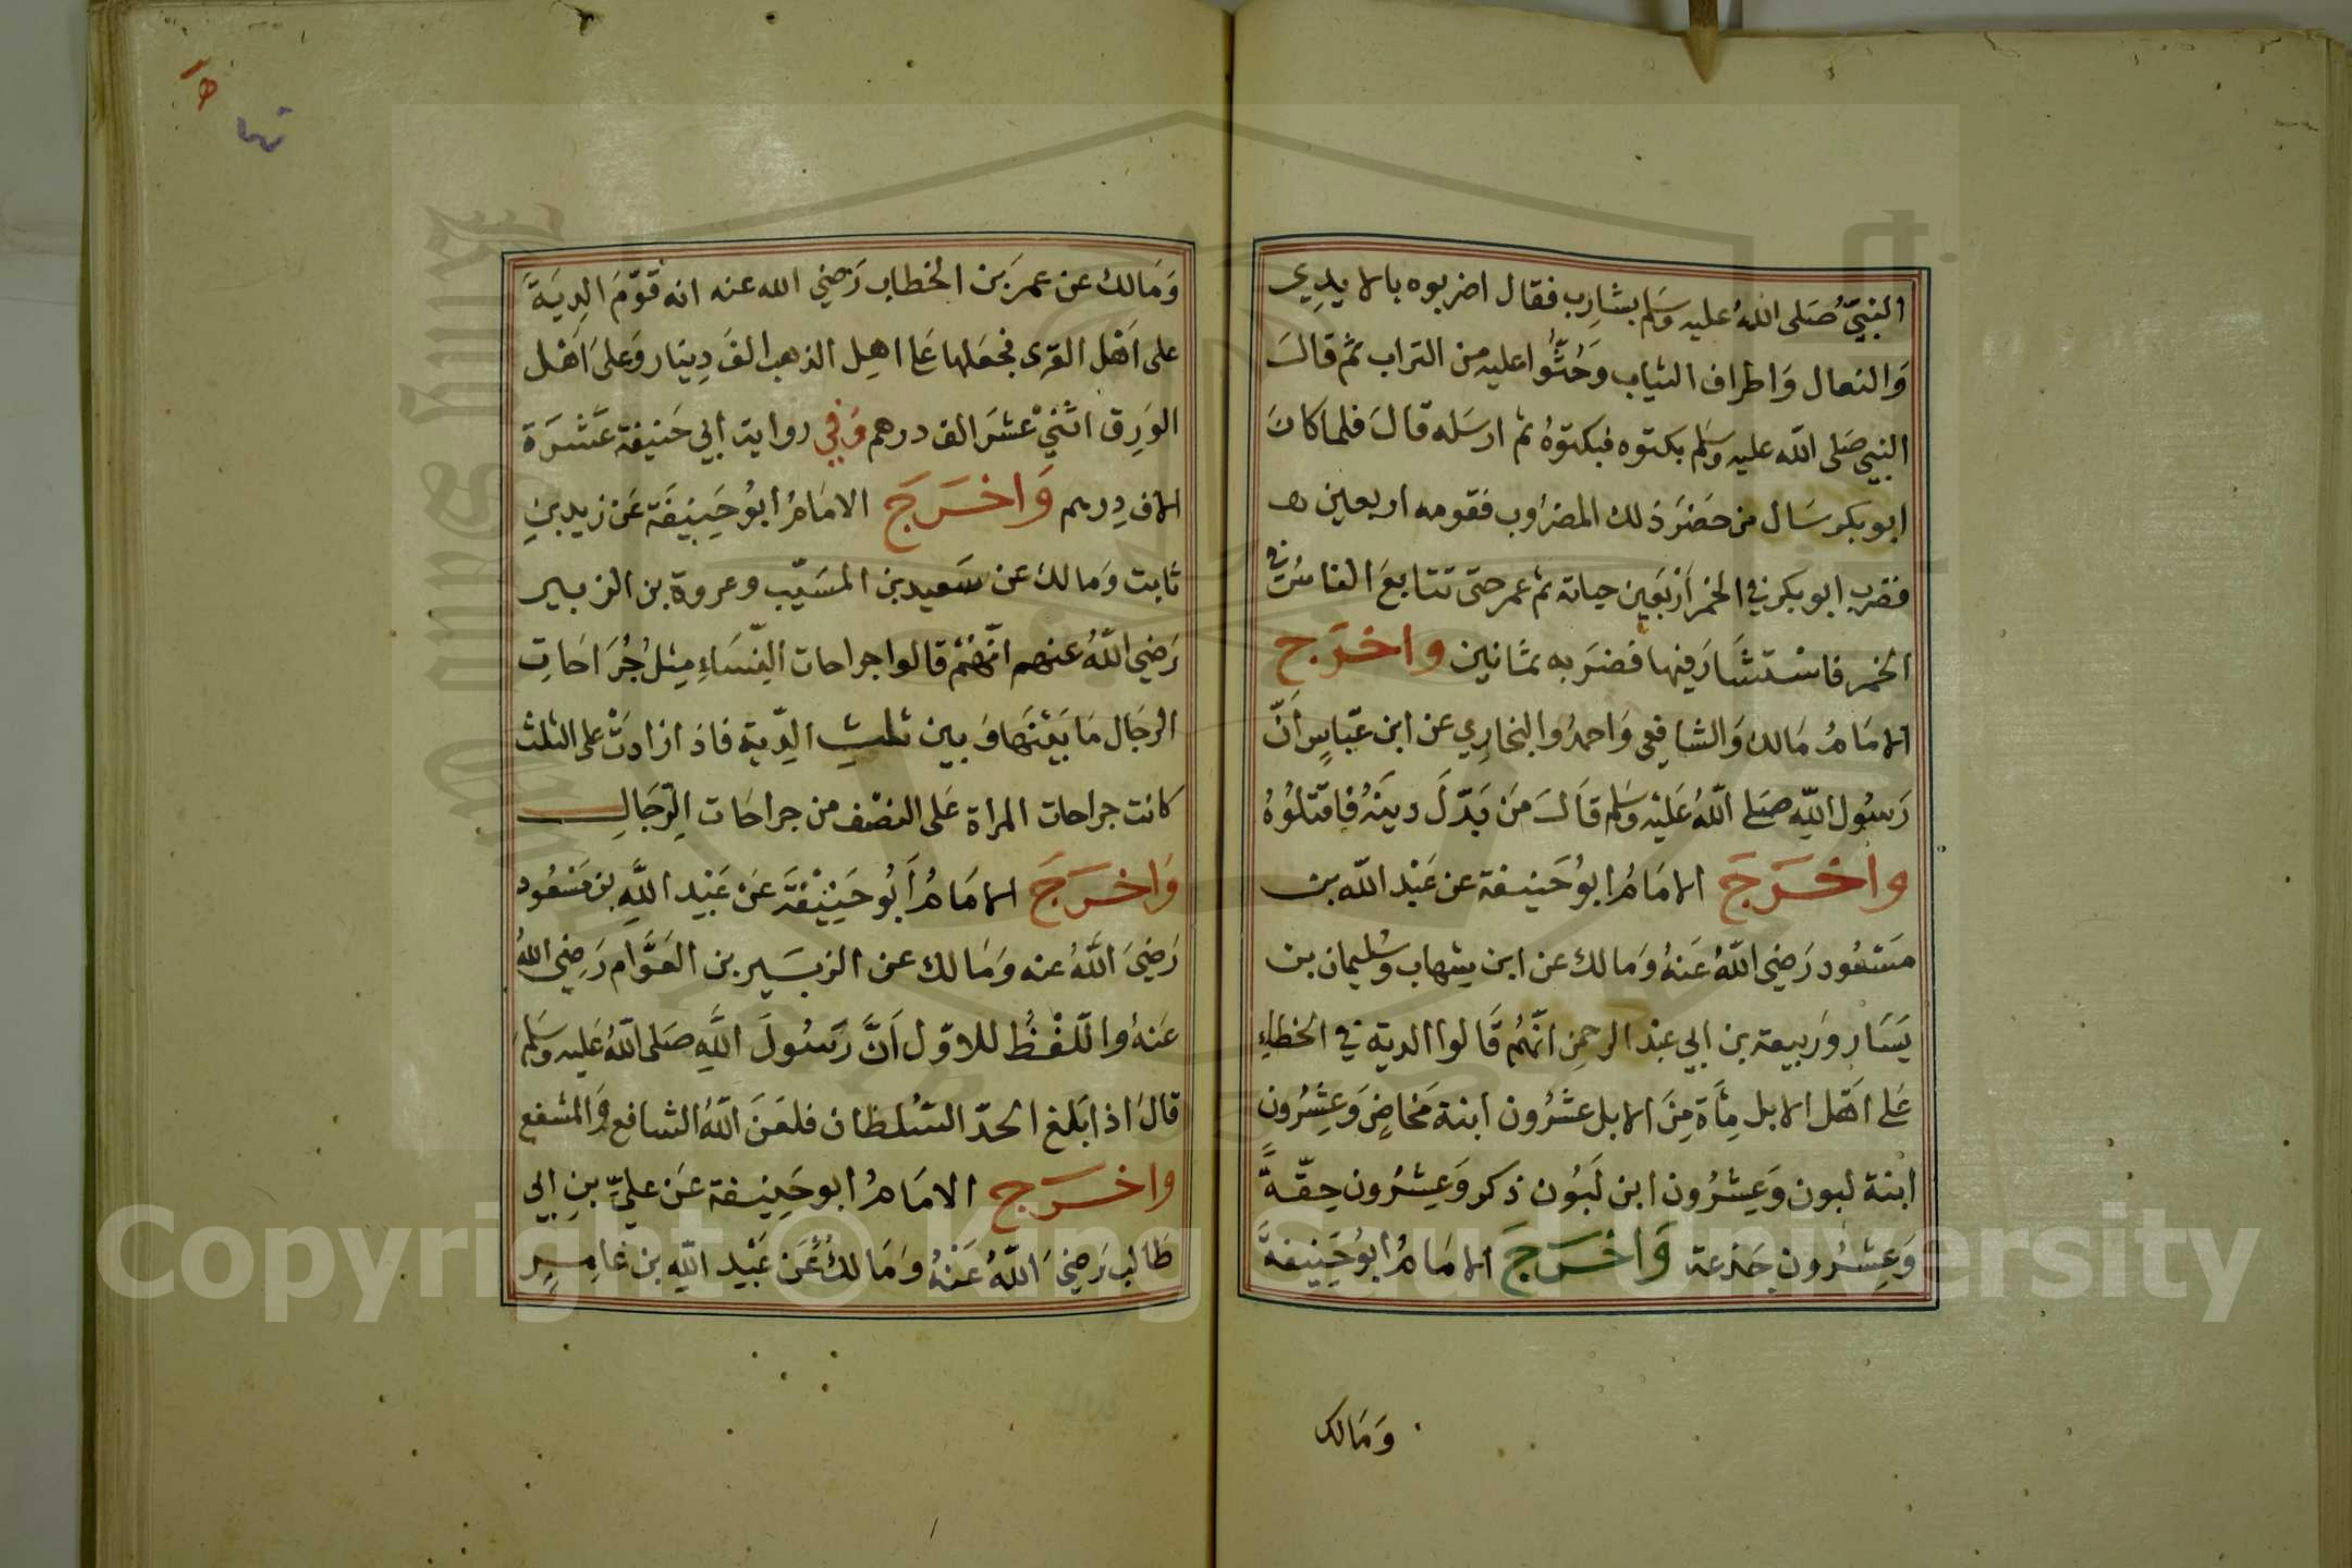 النبيُّ صَلى اللهُ عليه وسَلم بشارِب فقال اضربوه بالايدِي
وَالنعال وَاطراف الثياب وَحُثُّوا عليه من التراب ثم قالَ
النبي صَلى الله عليه وسَلم بكتوه فبكتوهُ ثم ارسَله قالَ فلما كانَ
ابو بكر سَال من حضَرَ ذلك المضرُوب فقومه اربعين
فضرب ابو بكر في الخمر اَرْبَعَين حياته ثم عمر حتى تتابعَ الناسُ في
الخمر فاسْتشَارَ فيها فضرَبه ثمَانين واخرَج
الامَامُ مَالك وَالشافِعي وَاحمدُ والبخارِي عن ابن عبّاسٍ اَنّ
رَسُول اللّه صَلى اللّهُ عَليْه وسَلم قاَلَ مَن بَدّلَ دينَهُ فاقتلُوُهُ
واخرَجَ الامَامُ ابوُحَنيفة عن عَبْد اللّه بن
مسَعُود رَضي اللّهُ عَنهُ وَمَالك عن ابن شِهاب وسُليمان بن
يَسَار وَرَبيعة بن ابي عبْد الرحمنِ انّهُم قَالوا الدية في الخطاءِ
عَلى اَهْل الابل مِاَة مِنَ الابل عشرُون ابنة مَخاضٍ وَعِشرُون
ابنة لبون وَعِشرُون ابن لَبُون ذكر وَعِشرُون حِقّةً
وَعِشرُون جَذعة وَاخرَجَ الامَامُ ابوُحَنِيفةَ
وَمَالك
وَمَالك عن عمرَ بن الخطاب رَضي الله عنه انه قوّمَ الدِيَةَ
على اَهْل القرى فجعَلها عَلى اهِل الذهب الفَ دِينار وَعلى اَهْل
الوَرِق اثنَيْ عشَر الف درهم وَفي رواية ابي حَنيفة عَشَرَة
الاف دِرهم وَاخرَجَ الامَامُ ابوُحَنِيفَة عَن زيد بنِ
ثابت وَمالك عن سَعيد بن المسَيّب وعروة بن الزبير
رَضي اللّهُ عنهم انّهُمْ قالوا جراحات النّسَاءِ مِثلُ جُرَاحَاتِ
الرجَال مَا بَيْنَهَا وَبين ثلثِ الدِّية فاذا زادتْ على الثلث
كانت جراحات المراة عَلى النصْف من جراحَات الرّجَالِ
وَاخرَجَ الامَامُ اَبُو حَنِيْفَةَ عَن عَبْد اللَّهِ بن مَسْعُود
رَضيَ اللَّهُ عنه وَمَالك عن الزبَير بن العَوَّام رَضِي اللهُ
عَنهُ واللّفْظُ للاوّل اَنَّ رَسُولَ اللَّهِ صَلى اللّهُ عَليه وسَلم
قالَ اذا بَلغ الحدّ السّلطان فلعَنَ اللّهُ الشافع وَالمشفع
واخرَج الامَامُ ابو حَنِيفة عَن عليِّ بنِ ابي
طَالب رَضيَ اللّهُ عَنْهُ وَمَالكُ عَن عَبْد اللّهِ بن عَامِرٍ